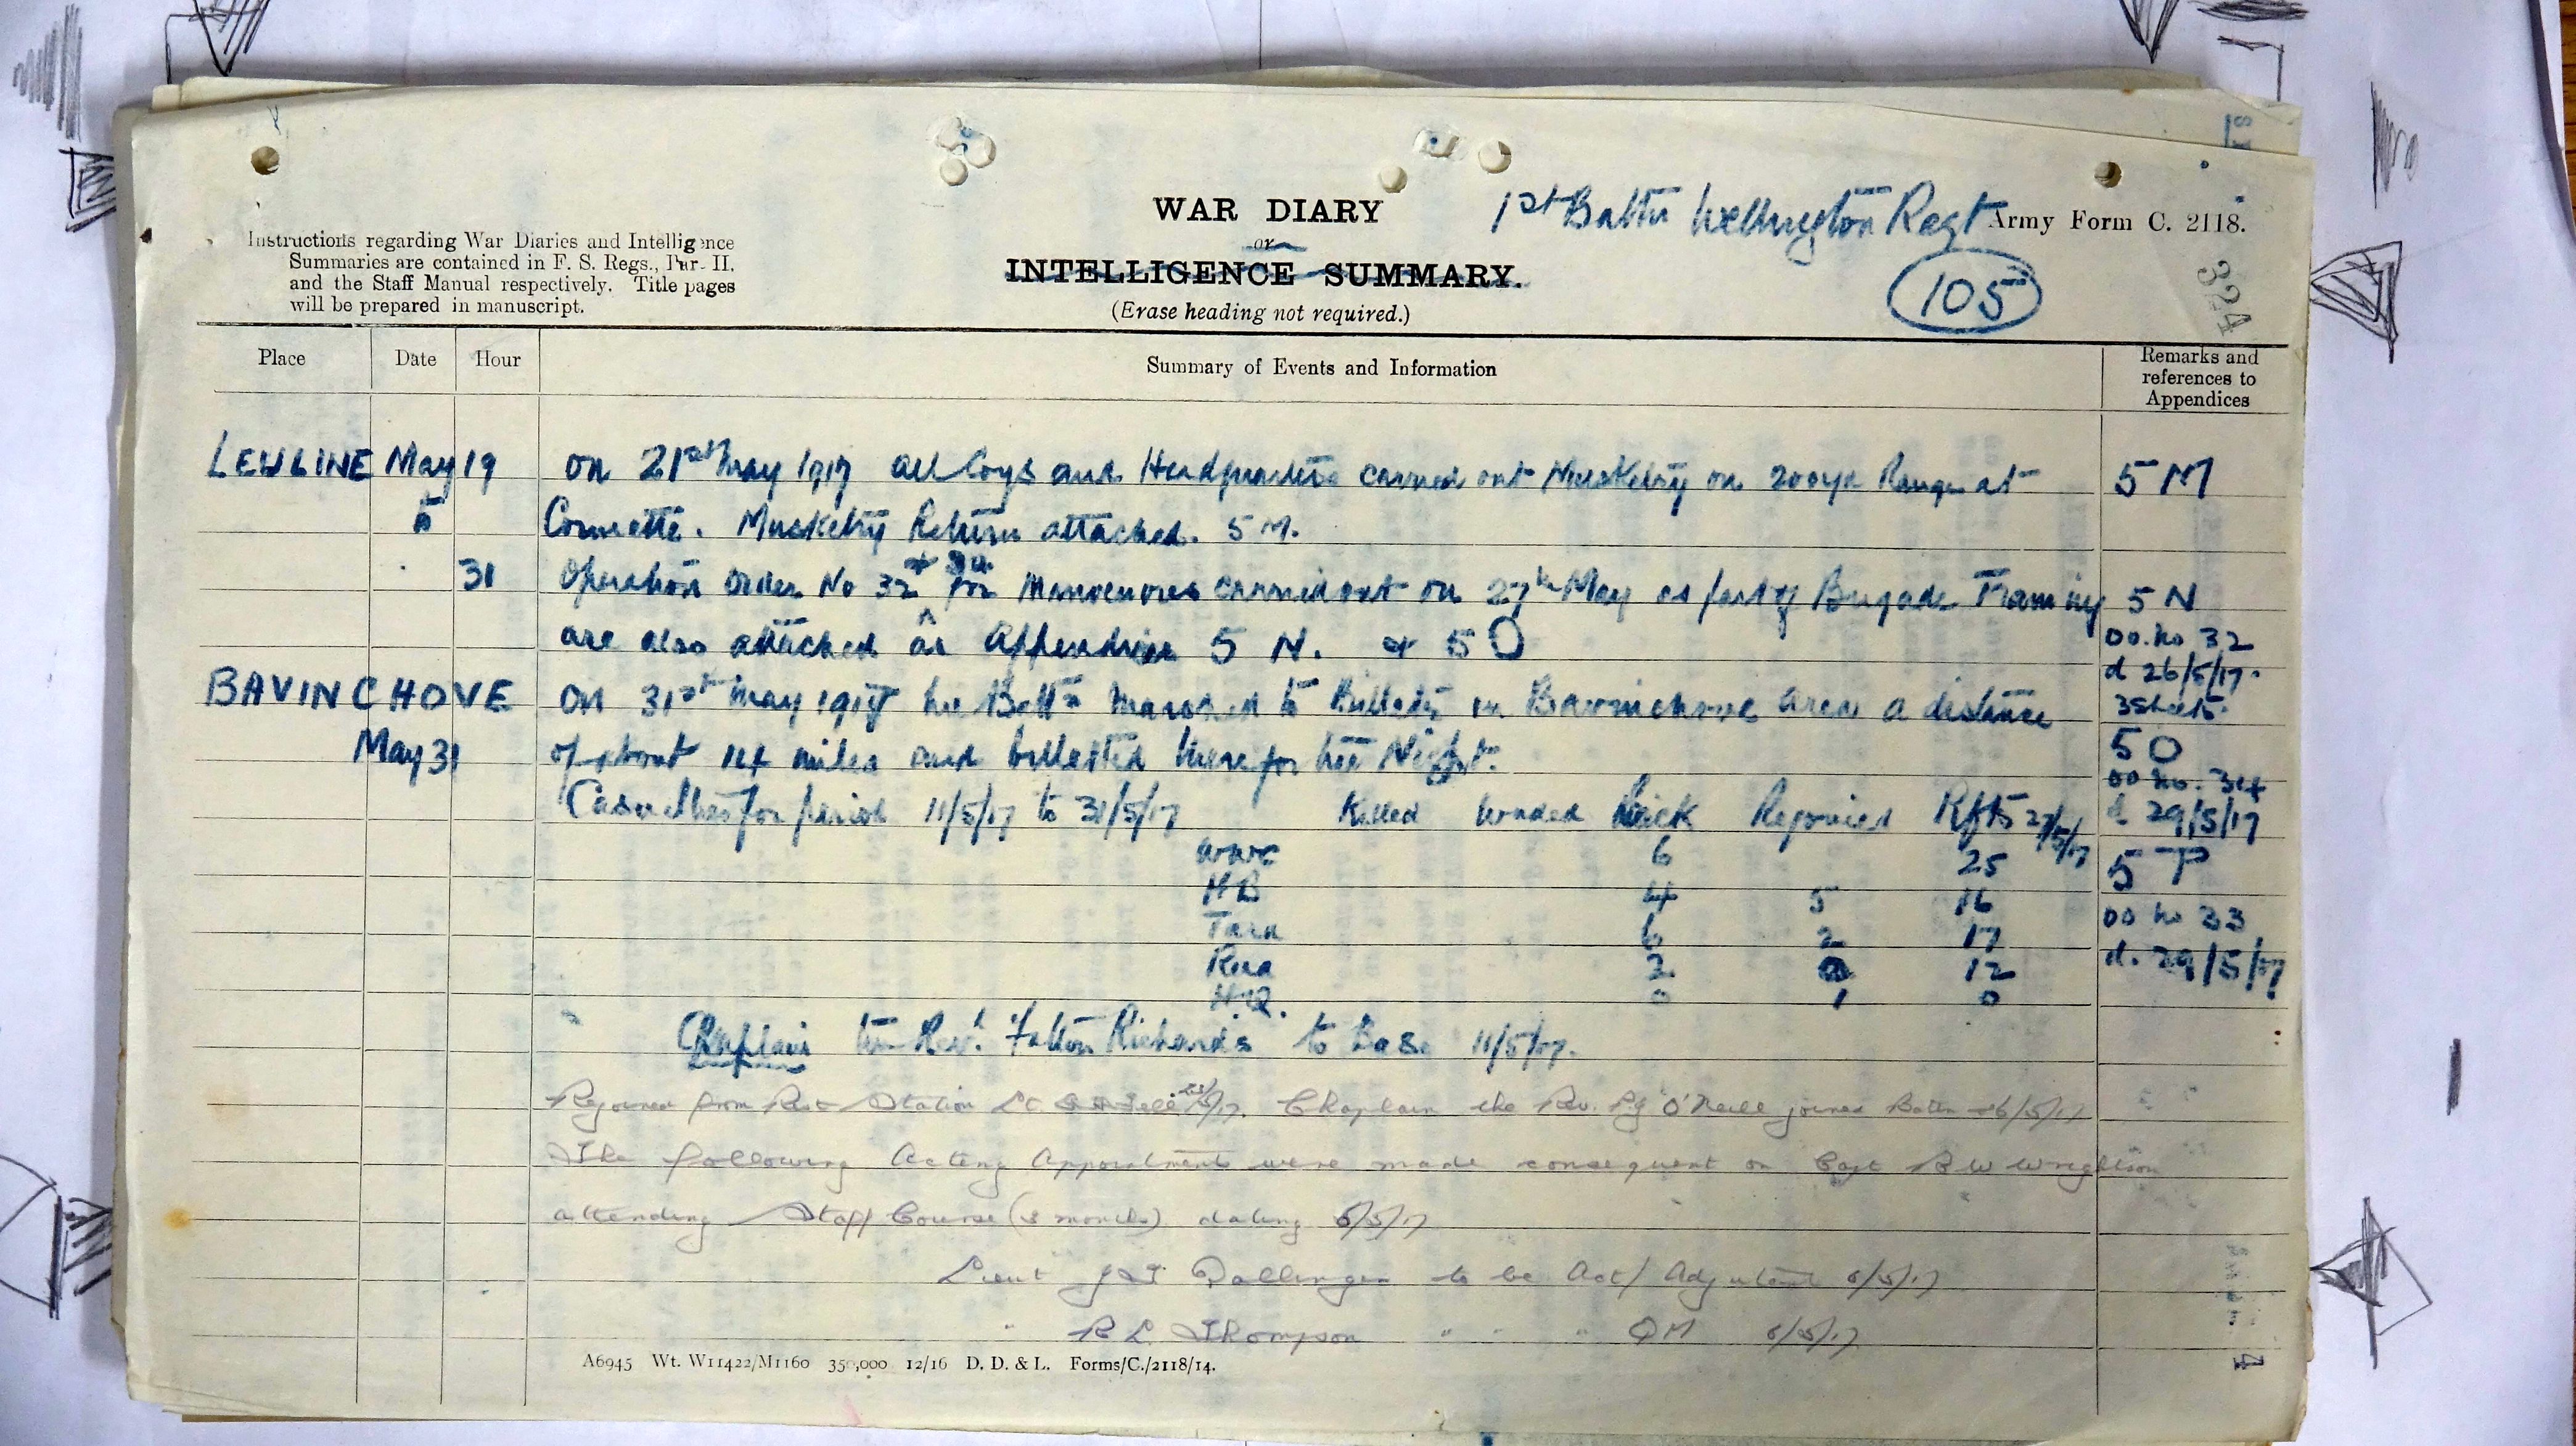 WAR DIARY
or
INTELLIGENCE SUMMARY.
(Erase heading not required.)
1st Battn Wellington Regt
Army Form C. 2118.
105
324
Instructions regarding War Diaries and Intelligence
Summaries are contained in F. S. Regs., Par II.
and the Staff Manual respectively. Title pages
will be prepared in manuscript.
Place Date Hour Summary of Events and Information Remarks and references to Appendices
LEULINE May 19 On 21st May 1917 all Coys and Headquarters carried out Musketry on 200yd Range at 5 M
to Cormette. Musketry Return attached. 5 M.
31 Operation Order No 32 + 34 for Manoeuvres carried out on 27th May as part of Brigade Training 5 N
are also attached as Appendices 5 N. & 5 O
OO. No 32
d 26/5/17.
BAVINCHOVE On 31st May 1917 the Battn marched to Billets in Bavinchove area a distance
3 Sheets.
May 31 of about 14 miles and billetted there for the Night.
5 O
OO No. 34
d. 29/5/17
Casualties for period 11/5/17 to 31/5/17 Killed Wounded Sick Rejoined Rfts 27/5/17
WWC 6 25
5 P
HB 4 5 16
OO No 33
Tara 6 2 17
d. 29/5/17
Rua 2 12
H.Q. 0 1 0
Chaplain the Revd. Fatton Richards to Base 11/5/17.
Rejoined from Rest Station Lt. Chaplain the Rev. O'Neill joined Battn 26/5/17
The following Acting Appointments were made consequent on Capt R W Wrightson
attending Staff Course (3 months) dating 6/5/17
Lieut Dallinger to be Act/ Adjutant 6/5/17
" R L Thompson " " " QM 6/5/17
A6945 Wt. W11422/M1160 350,000 12/16 D. D. & L. Forms/C./2118/14.